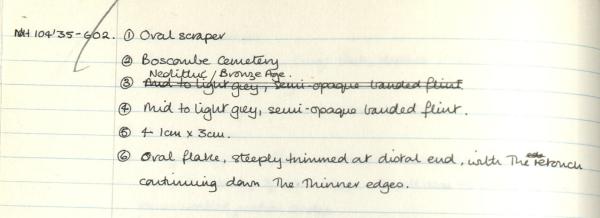 NH 104'35-602. ① Oval scraper
② Boscombe Cemetery
Neolithic / Bronze Age.
③ Mid to light grey, semi-opaque banded flint
④ Mid to light grey, semi-opaque banded flint.
⑤ 4 1cm x 3cm.
⑥ Oval flake, steeply trimmed at distal end, with The retouch
continuing down The Thinner edges.